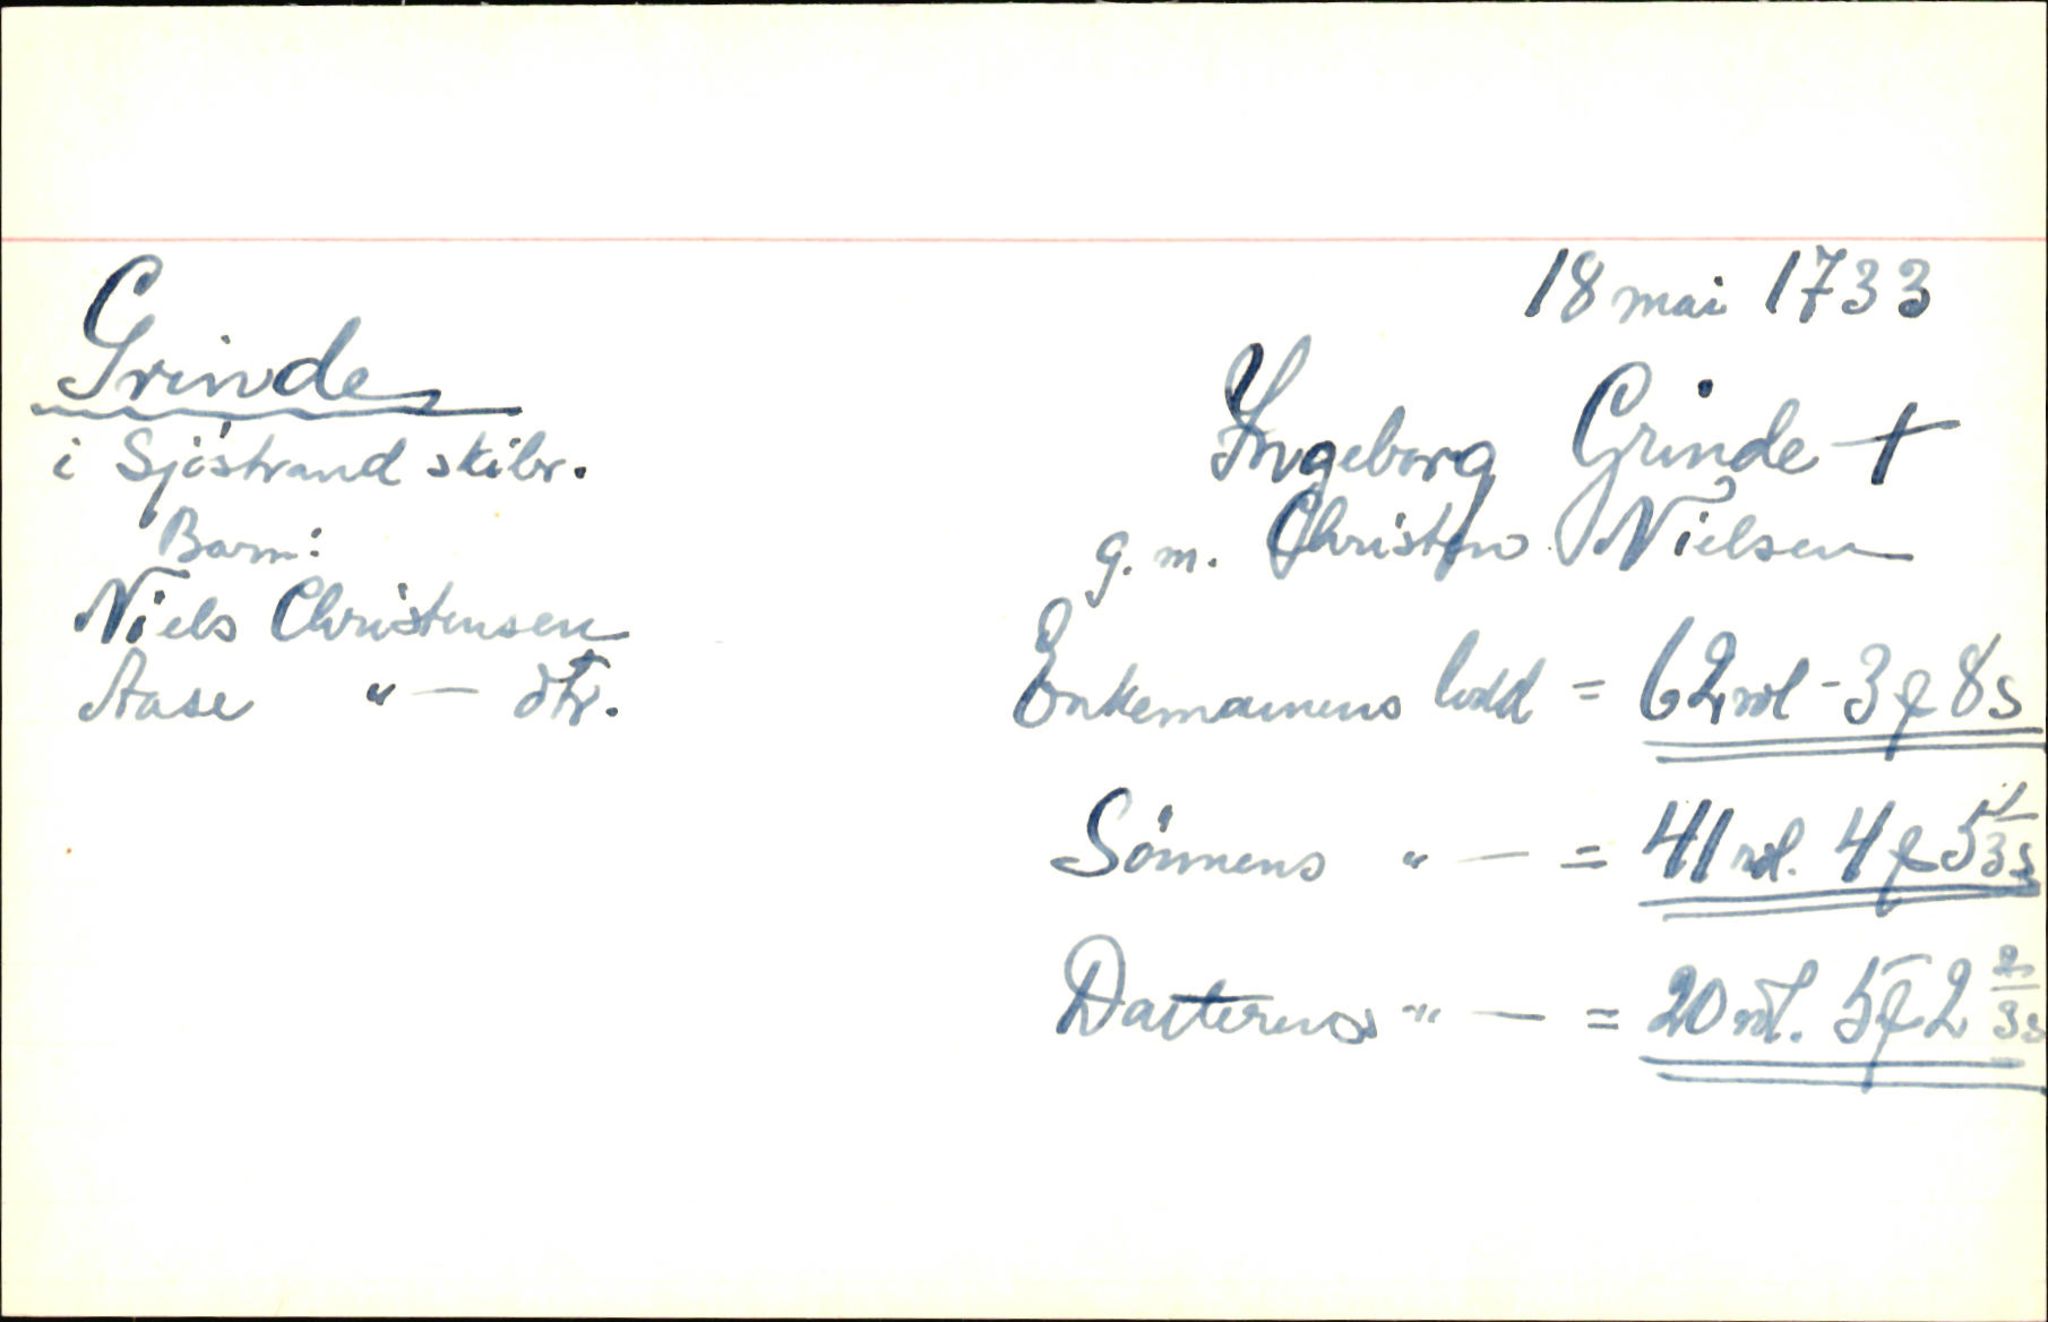 18 mai 1733
Grinde
i Sjöstrand skibr.
Barn:
Niels Christensen
Aase " — dtr.
Ingeborg Grinde +
g. m. Christen Nielsen
Enkemannens lodd = 62 rdl - 3 ƒ 8 s
Sönnens " — = 41 rdl. 4 ƒ 5 1/3 s
Datterens " — = 20 rdl. 5 ƒ 2 2/3 s